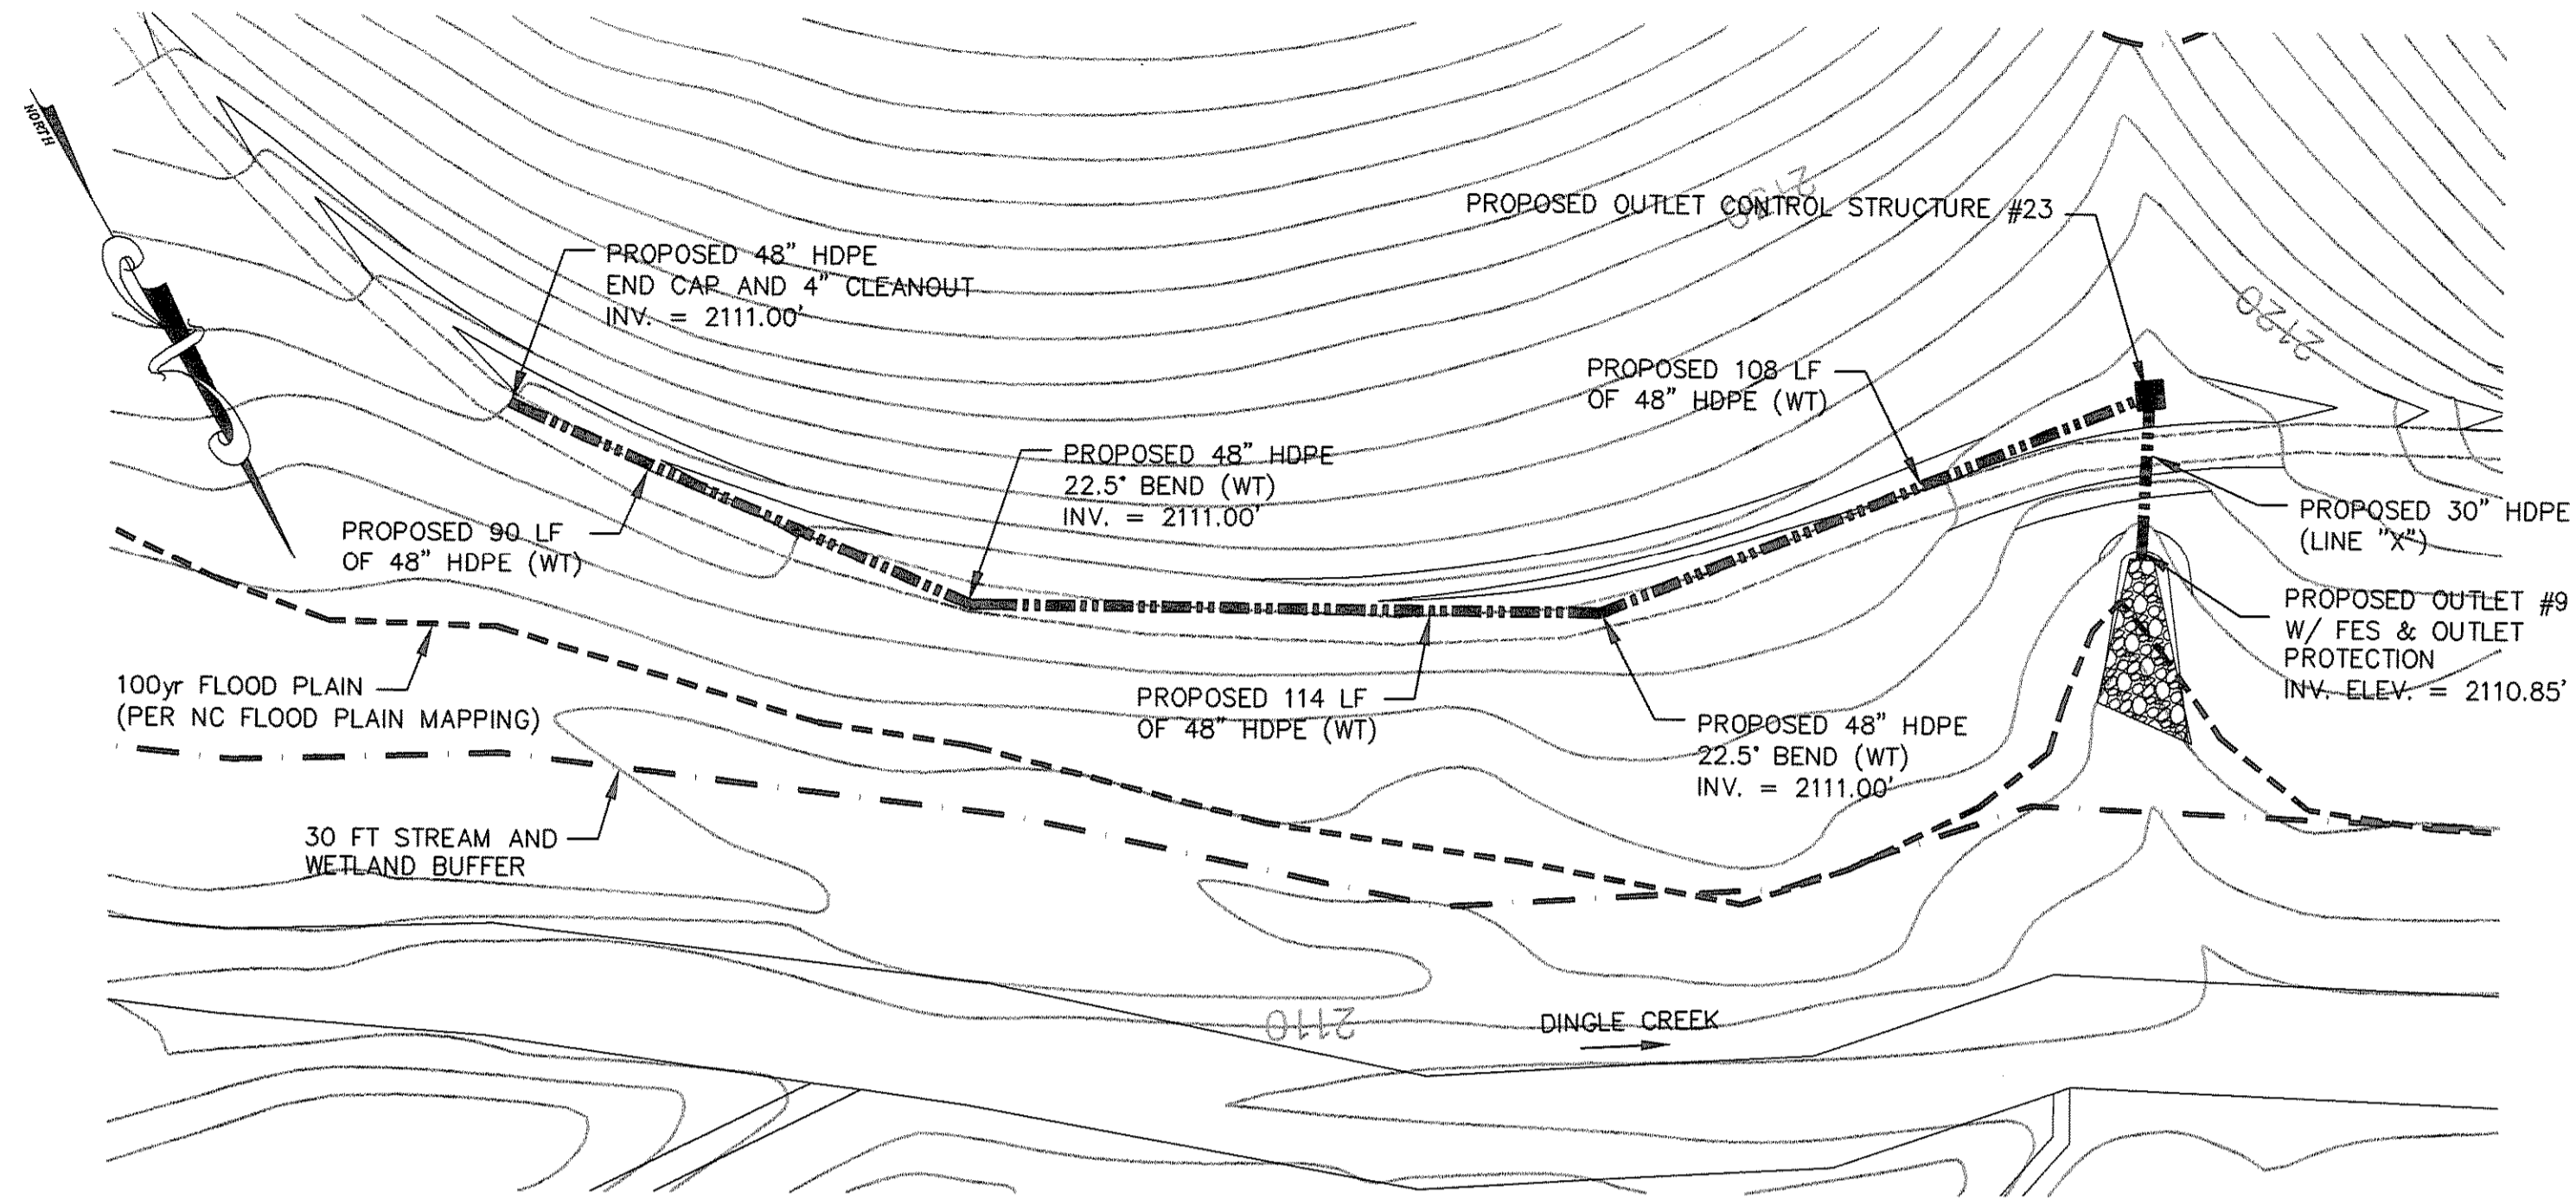 NORTH
2130
PROPOSED OUTLET CONTROL STRUCTURE #23
PROPOSED 48" HDPE
END CAP AND 4" CLEANOUT
INV. = 2111.00'
2120
PROPOSED 108 LF
OF 48" HDPE (WT)
PROPOSED 48" HDPE
22.5° BEND (WT)
INV. = 2111.00'
PROPOSED 90 LF
OF 48" HDPE (WT)
PROPOSED 30" HDPE
(LINE "X")
PROPOSED OUTLET #9
W/ FES & OUTLET
PROTECTION
INV. ELEV. = 2110.85'
100yr FLOOD PLAIN
(PER NC FLOOD PLAIN MAPPING)
PROPOSED 114 LF
OF 48" HDPE (WT)
PROPOSED 48" HDPE
22.5° BEND (WT)
INV. = 2111.00'
30 FT STREAM AND
WETLAND BUFFER
2110
DINGLE CREEK